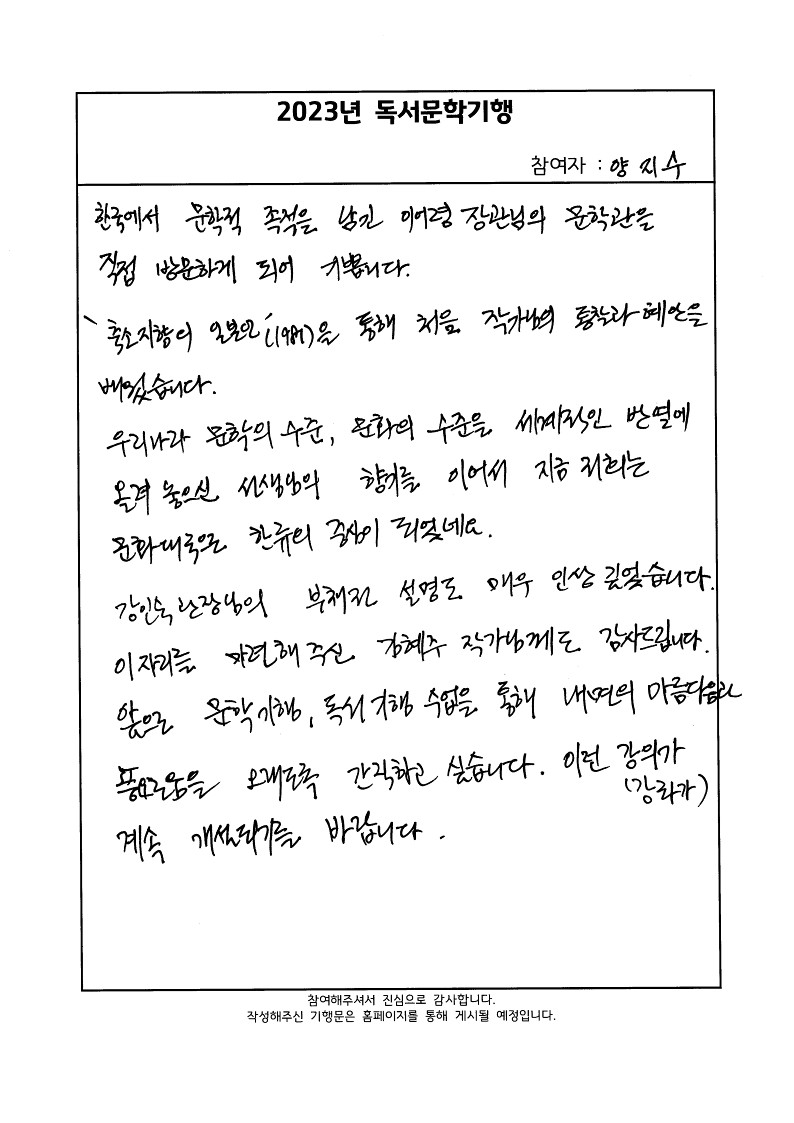 2023년 독서문학기행
참여자 : 양지수
한국에서 문학적 족적을 남긴 이어령 장관님의 문학관을
직접 방문하게 되어 기쁩니다.
`축소지향의 일본인´(1984)을 통해 처음 작가님의 통찰과 혜안을
배웠습니다.
우리나라 문학의 수준, 문화의 수준을 세계적인 반열에
올려 놓으신 선생님의 향기를 이어서 지금 저희는
문화대국으로 한류의 중심이 되었네요.
강인숙 관장님의 부채전 설명도 매우 인상 깊었습니다.
이 자리를 마련해 주신 김혜주 작가님께도 감사드립니다.
앞으로 문학기행, 독서기행 수업을 통해 내면의 아름다움과
풍요로움을 오래도록 간직하고 싶습니다. 이런 강의가
(강좌가)
계속 개설되기를 바랍니다.
참여해주셔서 진심으로 감사합니다.
작성해주신 기행문은 홈페이지를 통해 게시될 예정입니다.